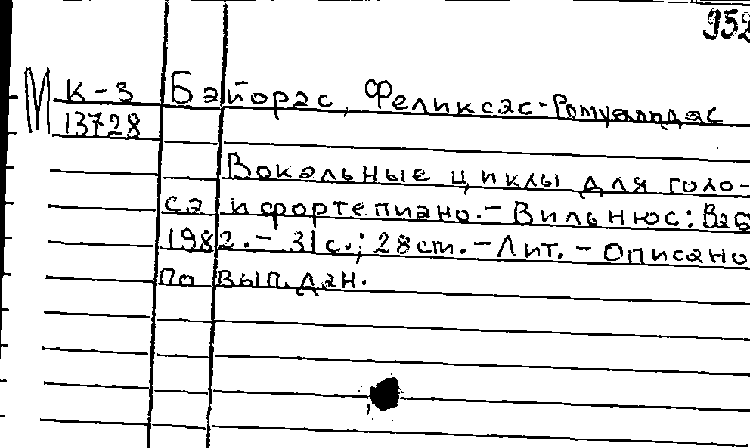 952
М К-3 Байорас, Феликсас-Ромуалдас
13728
Вокальные циклы для голо-
са и фортепиано. - Вильнюс: Ваб
1982. - 31 с.; 28 ст. - Лит. - Описано
по вып. дан.